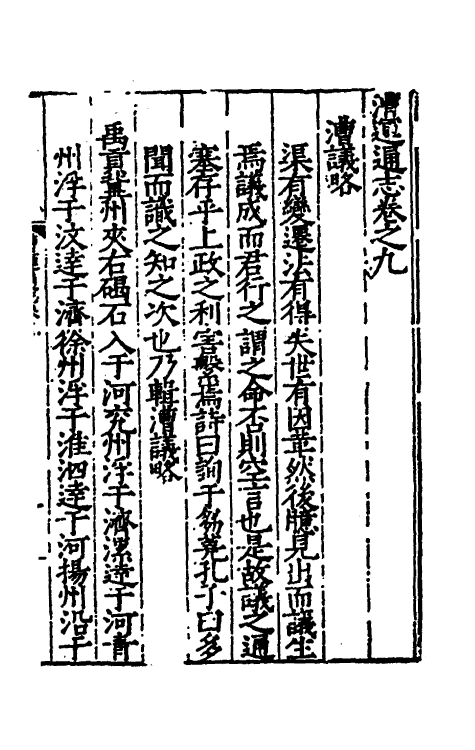 漕運通志卷之九
漕議略
渠有變遷法有得失世有因革然後臆見出而議生
焉議成而君行之謂之命否則空言也是故議之通
塞存乎上政之利害繫焉詩曰詢于芻蕘孔子曰多
聞而識之知之次也乃輯漕議略
禹貢冀州夾右碣石入于河兖州浮于濟漯達于河青
州浮于汶達于濟徐州浮于淮泗達于河揚州沿于